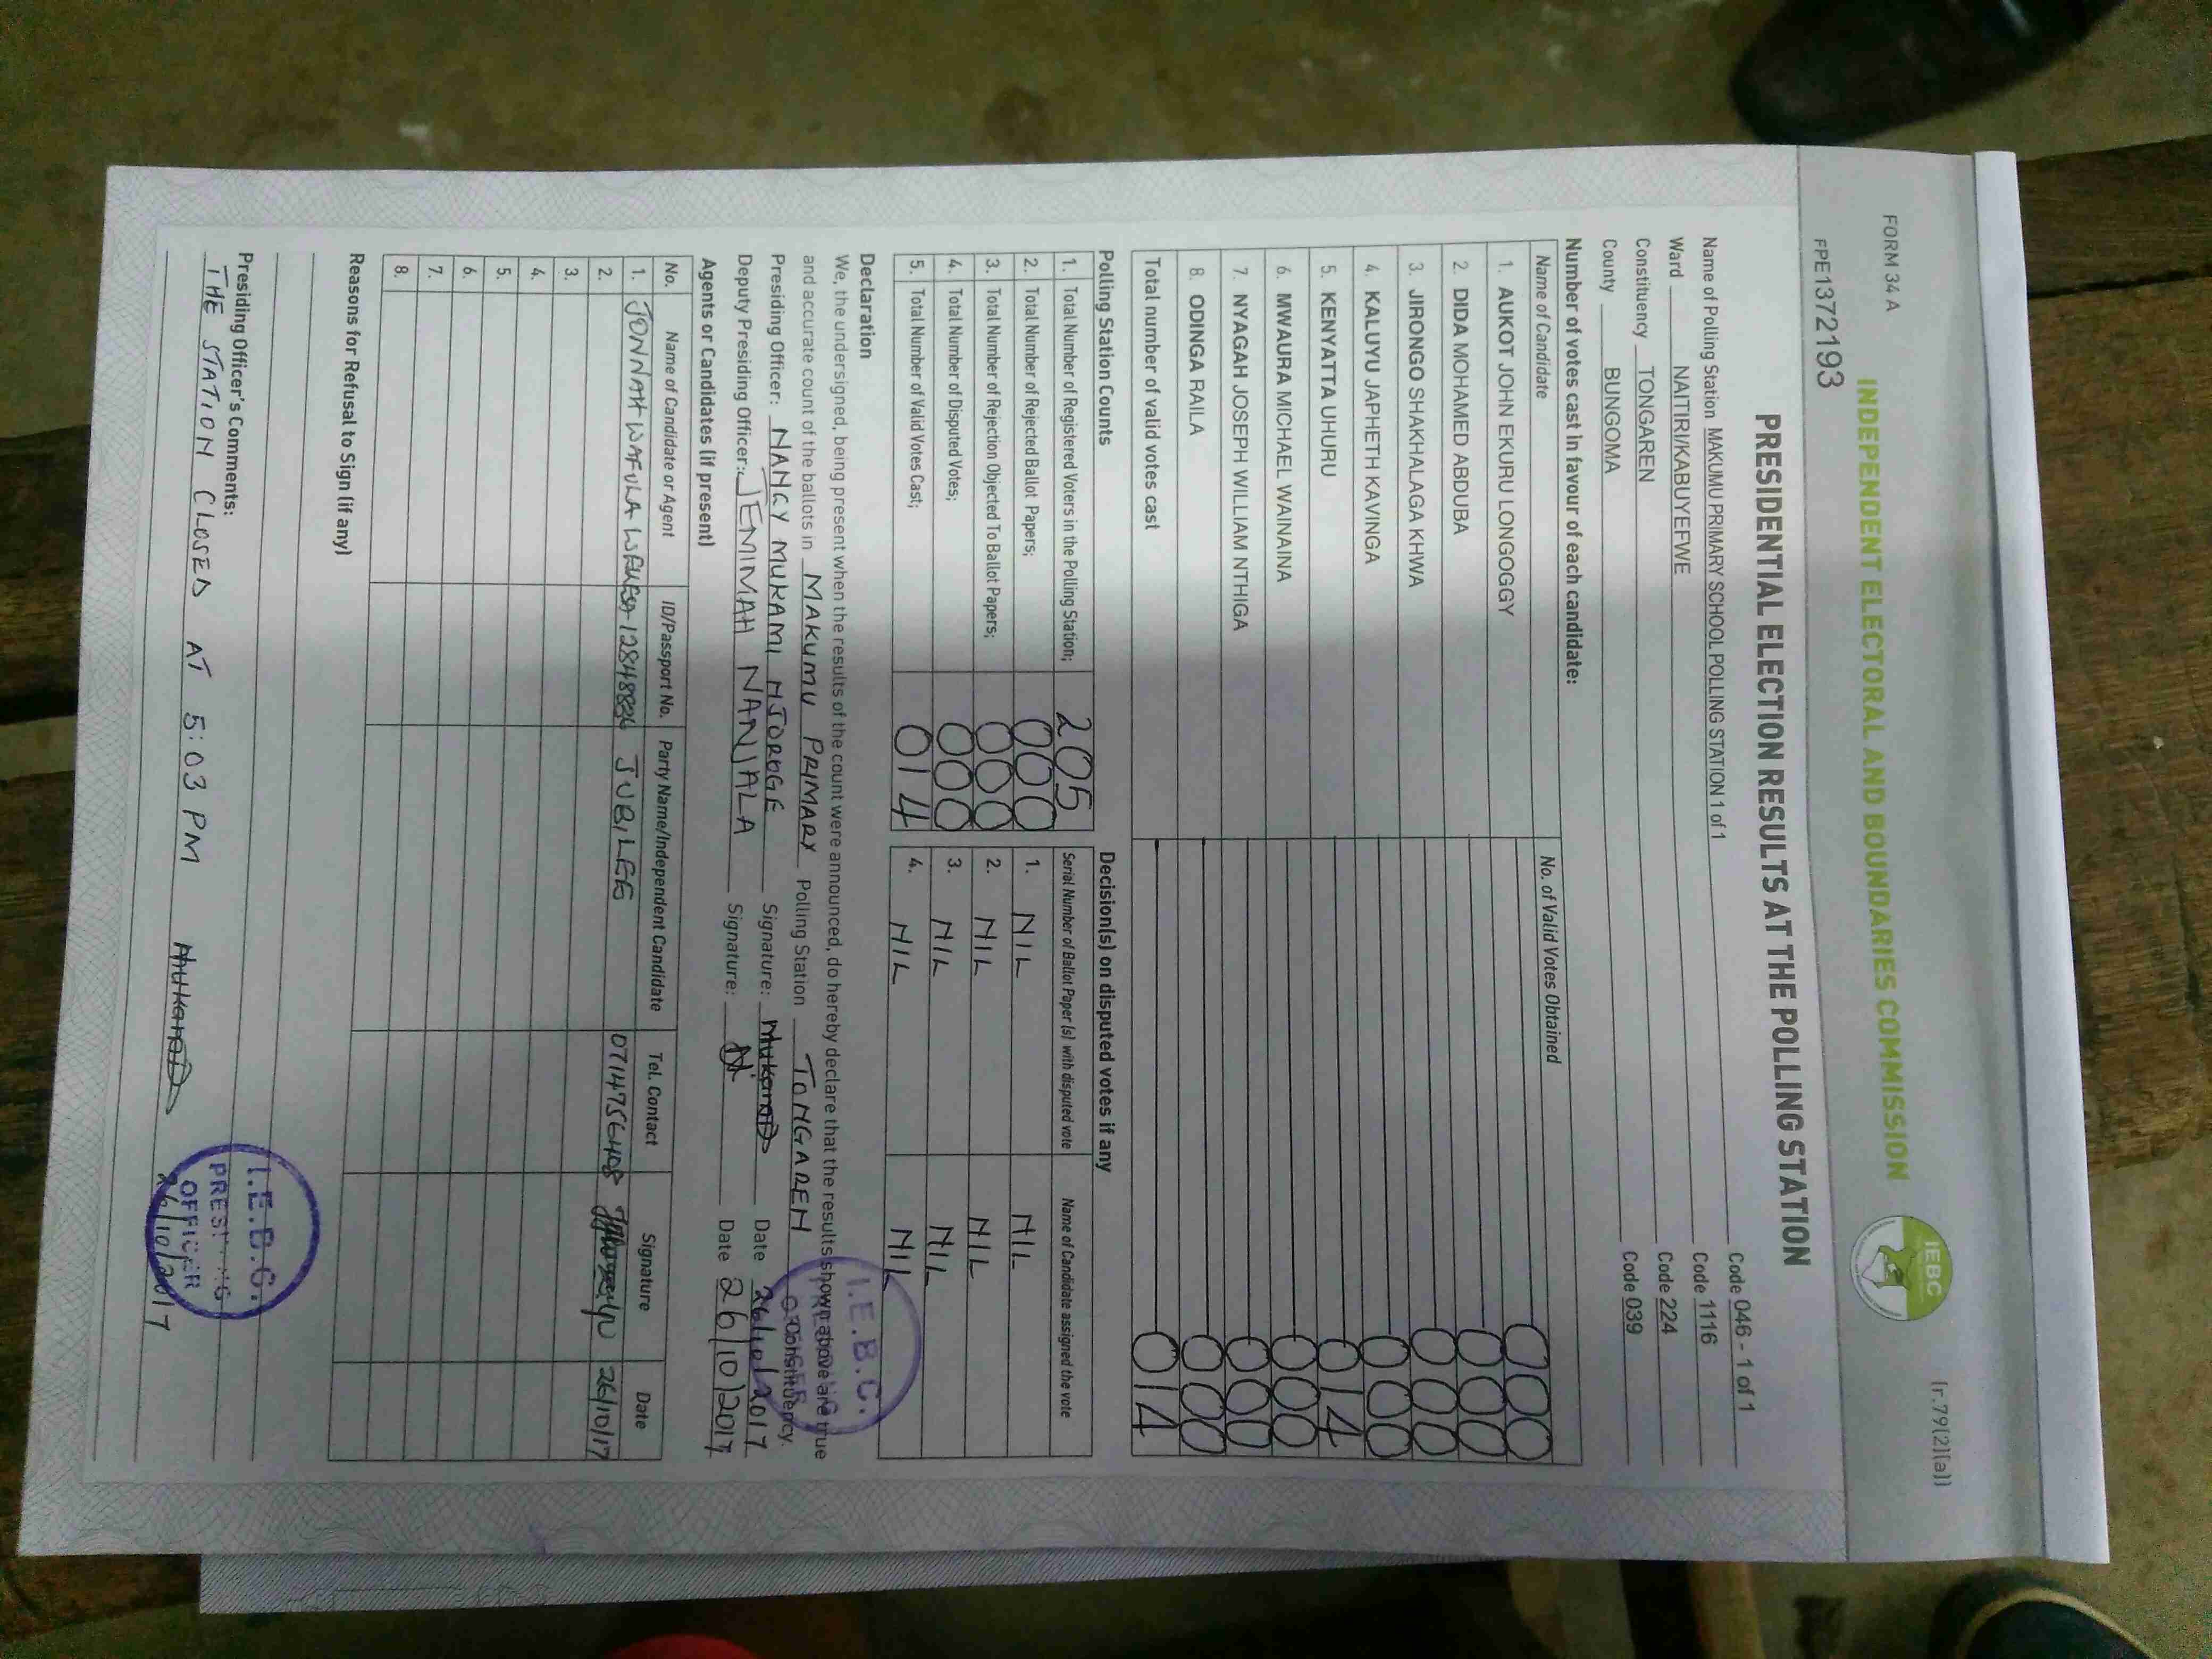 FORM 34 A
(r.79(2)(a))
INDEPENDENT ELECTORAL AND BOUNDARIES COMMISSION
IEBC
FPE1372193
PRESIDENTIAL ELECTION RESULTS AT THE POLLING STATION
Name of Polling Station MAKUMU PRIMARY SCHOOL POLLING STATION 1 of 1 Code 046 - 1 of 1
Ward NAITIRI/KABUYEFWE Code 1116
Constituency TONGAREN Code 224
County BUNGOMA Code 039
Number of votes cast in favour of each candidate:
Name of Candidate No. of Valid Votes Obtained
1. AUKOT JOHN EKURU LONGOGGY 000
2. DIDA MOHAMED ABDUBA 000
3. JIRONGO SHAKHALAGA KHWA 000
4. KALUYU JAPHETH KAVINGA 000
5. KENYATTA UHURU 014
6. MWAURA MICHAEL WAINAINA 000
7. NYAGAH JOSEPH WILLIAM NTHIGA 000
8. ODINGA RAILA 000
Total number of valid votes cast 014
Polling Station Counts
1. Total Number of Registered Voters in the Polling Station; 205
2. Total Number of Rejected Ballot Papers; 000
3. Total Number of Rejection Objected To Ballot Papers; 000
4. Total Number of Disputed Votes; 000
5. Total Number of Valid Votes Cast; 014
Decision(s) on disputed votes if any
Serial Number of Ballot Paper (s) with disputed vote Name of Candidate assigned the vote
1. NIL NIL
2. NIL NIL
3. NIL NIL
4. NIL NIL
Declaration
We, the undersigned, being present when the results of the count were announced, do hereby declare that the results shown above are true
and accurate count of the ballots in MAKUMU PRIMARY Polling Station TONGAREN Constituency.
Presiding Officer: NANCY MUKAMI NJOROGE Signature: Date 26/10/2017
Deputy Presiding Officer: JEMIMAH NANJALA Signature: Date 26/10/2017
I.E.B.C.
Agents or Candidates (if present)
No. Name of Candidate or Agent ID/Passport No. Party Name/Independent Candidate Tel. Contact Signature Date
1. JONNAH WAFULA JUBILEE 0714756408 26/10/17
2.
3.
4.
5.
6.
7.
8.
Reasons for Refusal to Sign (if any)
Presiding Officer's Comments:
THE STATION CLOSED AT 5:03 PM 26/10/2017
I.E.B.C.
PRESIDING
OFFICER